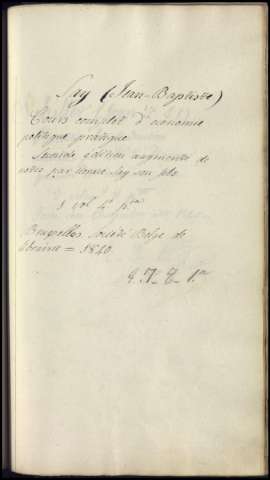 Say (Jean-Baptiste)
Cours complet d'economie
politique pratique
Seconde édition augmentée de
notes par horace Say son fils
1 vol 4º
Bruxelles société Belge de
librairie = 1840